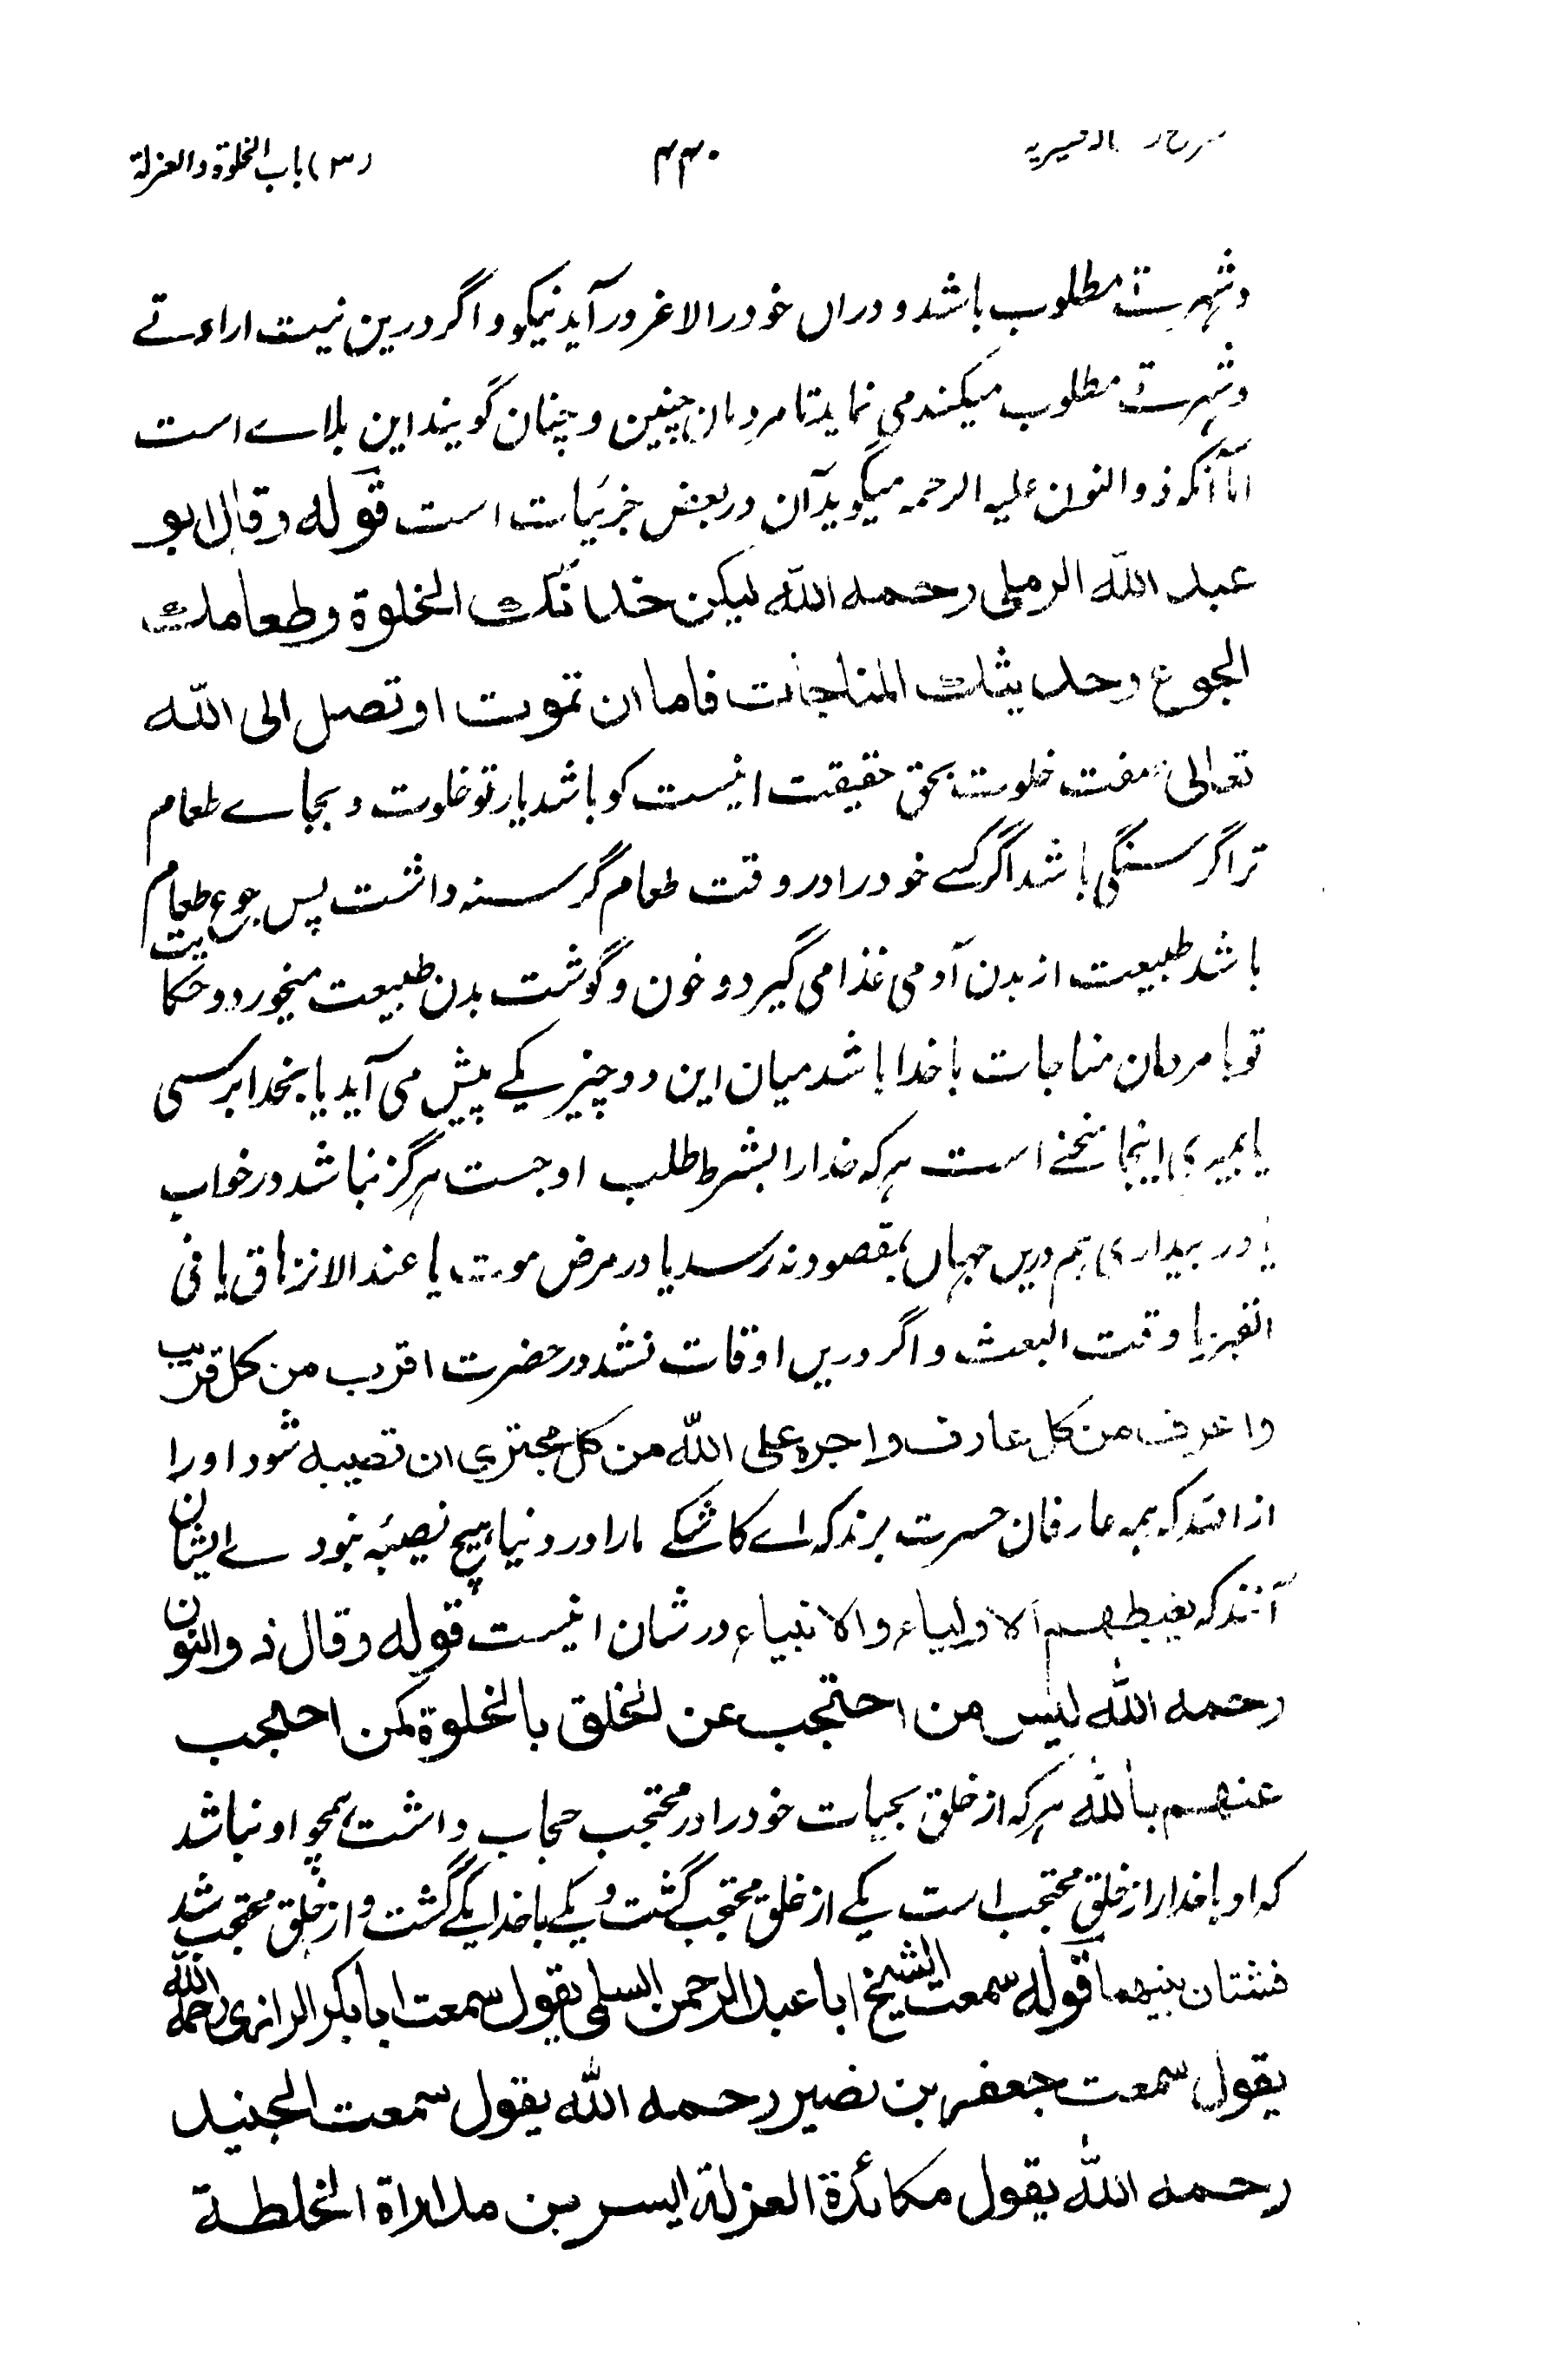 (۳) باب الخلوة والعزلة ۴۴۰
وشهرت مطلوب باشد و دراں خود را لاغر ورآید نیکو و اگر درین نیت اراءتے
وشهرت مطلوب میکند می نماید تا مردمان چنین و چنان گویند این بلاے است
اما آنکه ذوالنون علیه الرحمه میگوید آن در بعض جزئیات است قوله وقال ابو
عبد الله الرملی رحمه الله لیکن خدانك الخلوة وطعامك
الجوع وحدیثك المناجات فاما ان تموت او تصل الی الله
تعالی صفت خلوت بحق حقیقت اینست کو باشد یار تو خلوت و بجاے طعام
ترا گرسنگی باشد اگر کسے خود را در وقت طعام گرسنه داشت پس جوع طعام
باشد طبیعت از بدن آدمی غذا می گیرد و خون و گوشت بدن طبیعت میخورد و حکایت
تو با مردمان مناجات با خدا باشد میان این دو چیز یکے پیش می آید یا بخدا برسی
یا بمیری اینجا سخنے است هرکه خدا را بشرط طلب او جست هرگز نباشد در خواب
یا در بیداری هم دریں جهاں بمقصود نرسد یا در مرض موت یا عند الانزهاق یا فی
القبر یا وقت البعث و اگر دریں اوقات نشد در حضرت اقرب من کل قریب
واعرف من کل عارف واجره علی الله من کل مجتری ان نصیبه شود اورا
از انند که همه عارفان حسرت برند که اے کاشکے مارا در دنیا هیچ نصیبه نبودے ایشان
آنند که یغبطهم الاولیاء والانبیاء در شان اینست قوله وقال ذوالنون
رحمه الله لیس من احتجب عن الخلق بالخلوة کمن احتجب
عنهم بالله هرکه از خلق بحیات خود را در محتجب حجاب داشت همچو او نباشد
که او با خدا را از خلق محتجب است یکے از خلق محتجب گشت و یکے با خدا یکے گشت و از خلق محتجب شد
فشتان بینهما قوله سمعت الشیخ ابا عبد الرحمن السلمی یقول سمعت ابا بکر الرازی رحمه الله
یقول سمعت جعفر بن نصیر رحمه الله یقول سمعت الجنید
رحمه الله یقول مکائدة العزلة ایسر من مداراة الخلطة